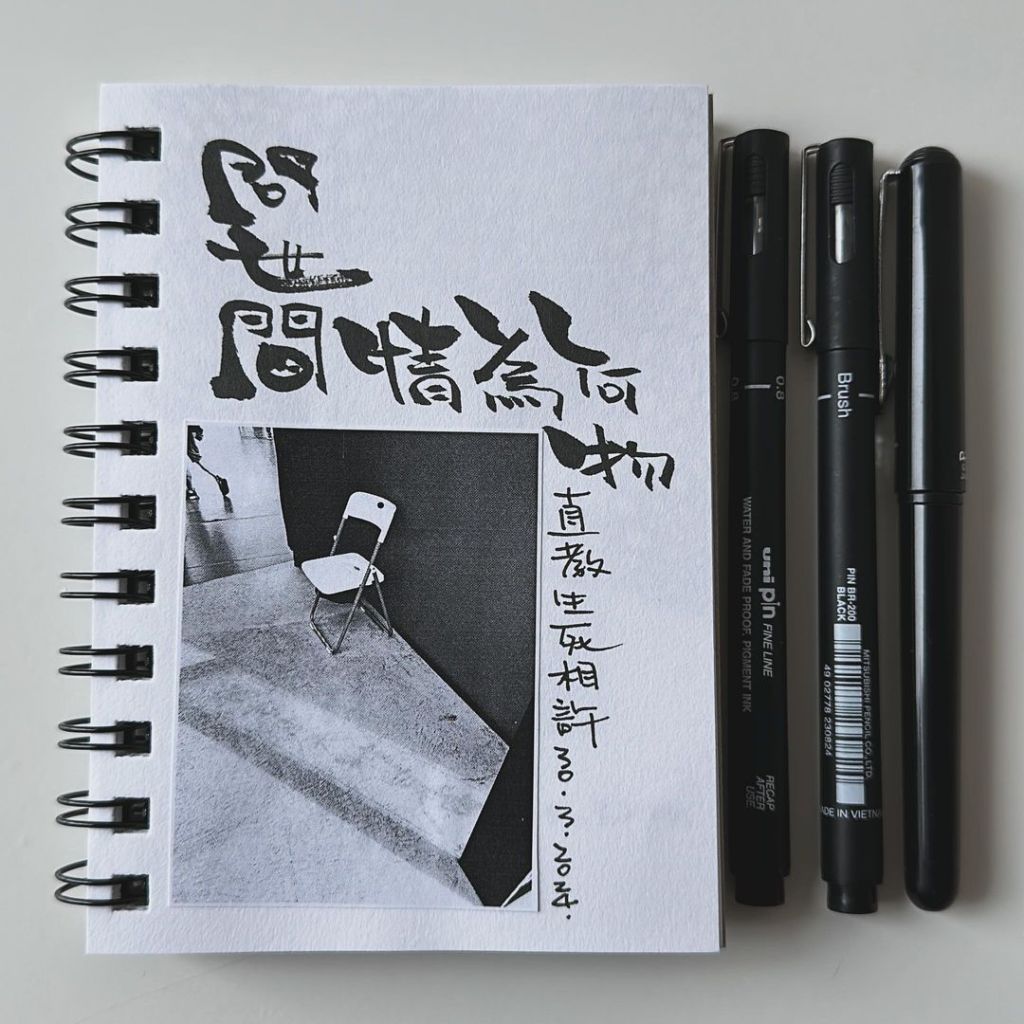 問世間情為何物
直教生死相許
30.3.2024.
0.8
uni pin FINE LINE
WATER AND FADE PROOF, PIGMENT INK
RECAP AFTER USE
Brush
PIN BR-200
BLACK
MITSUBISHI PENCIL CO., LTD.
49 02778 230824
MADE IN VIETNAM